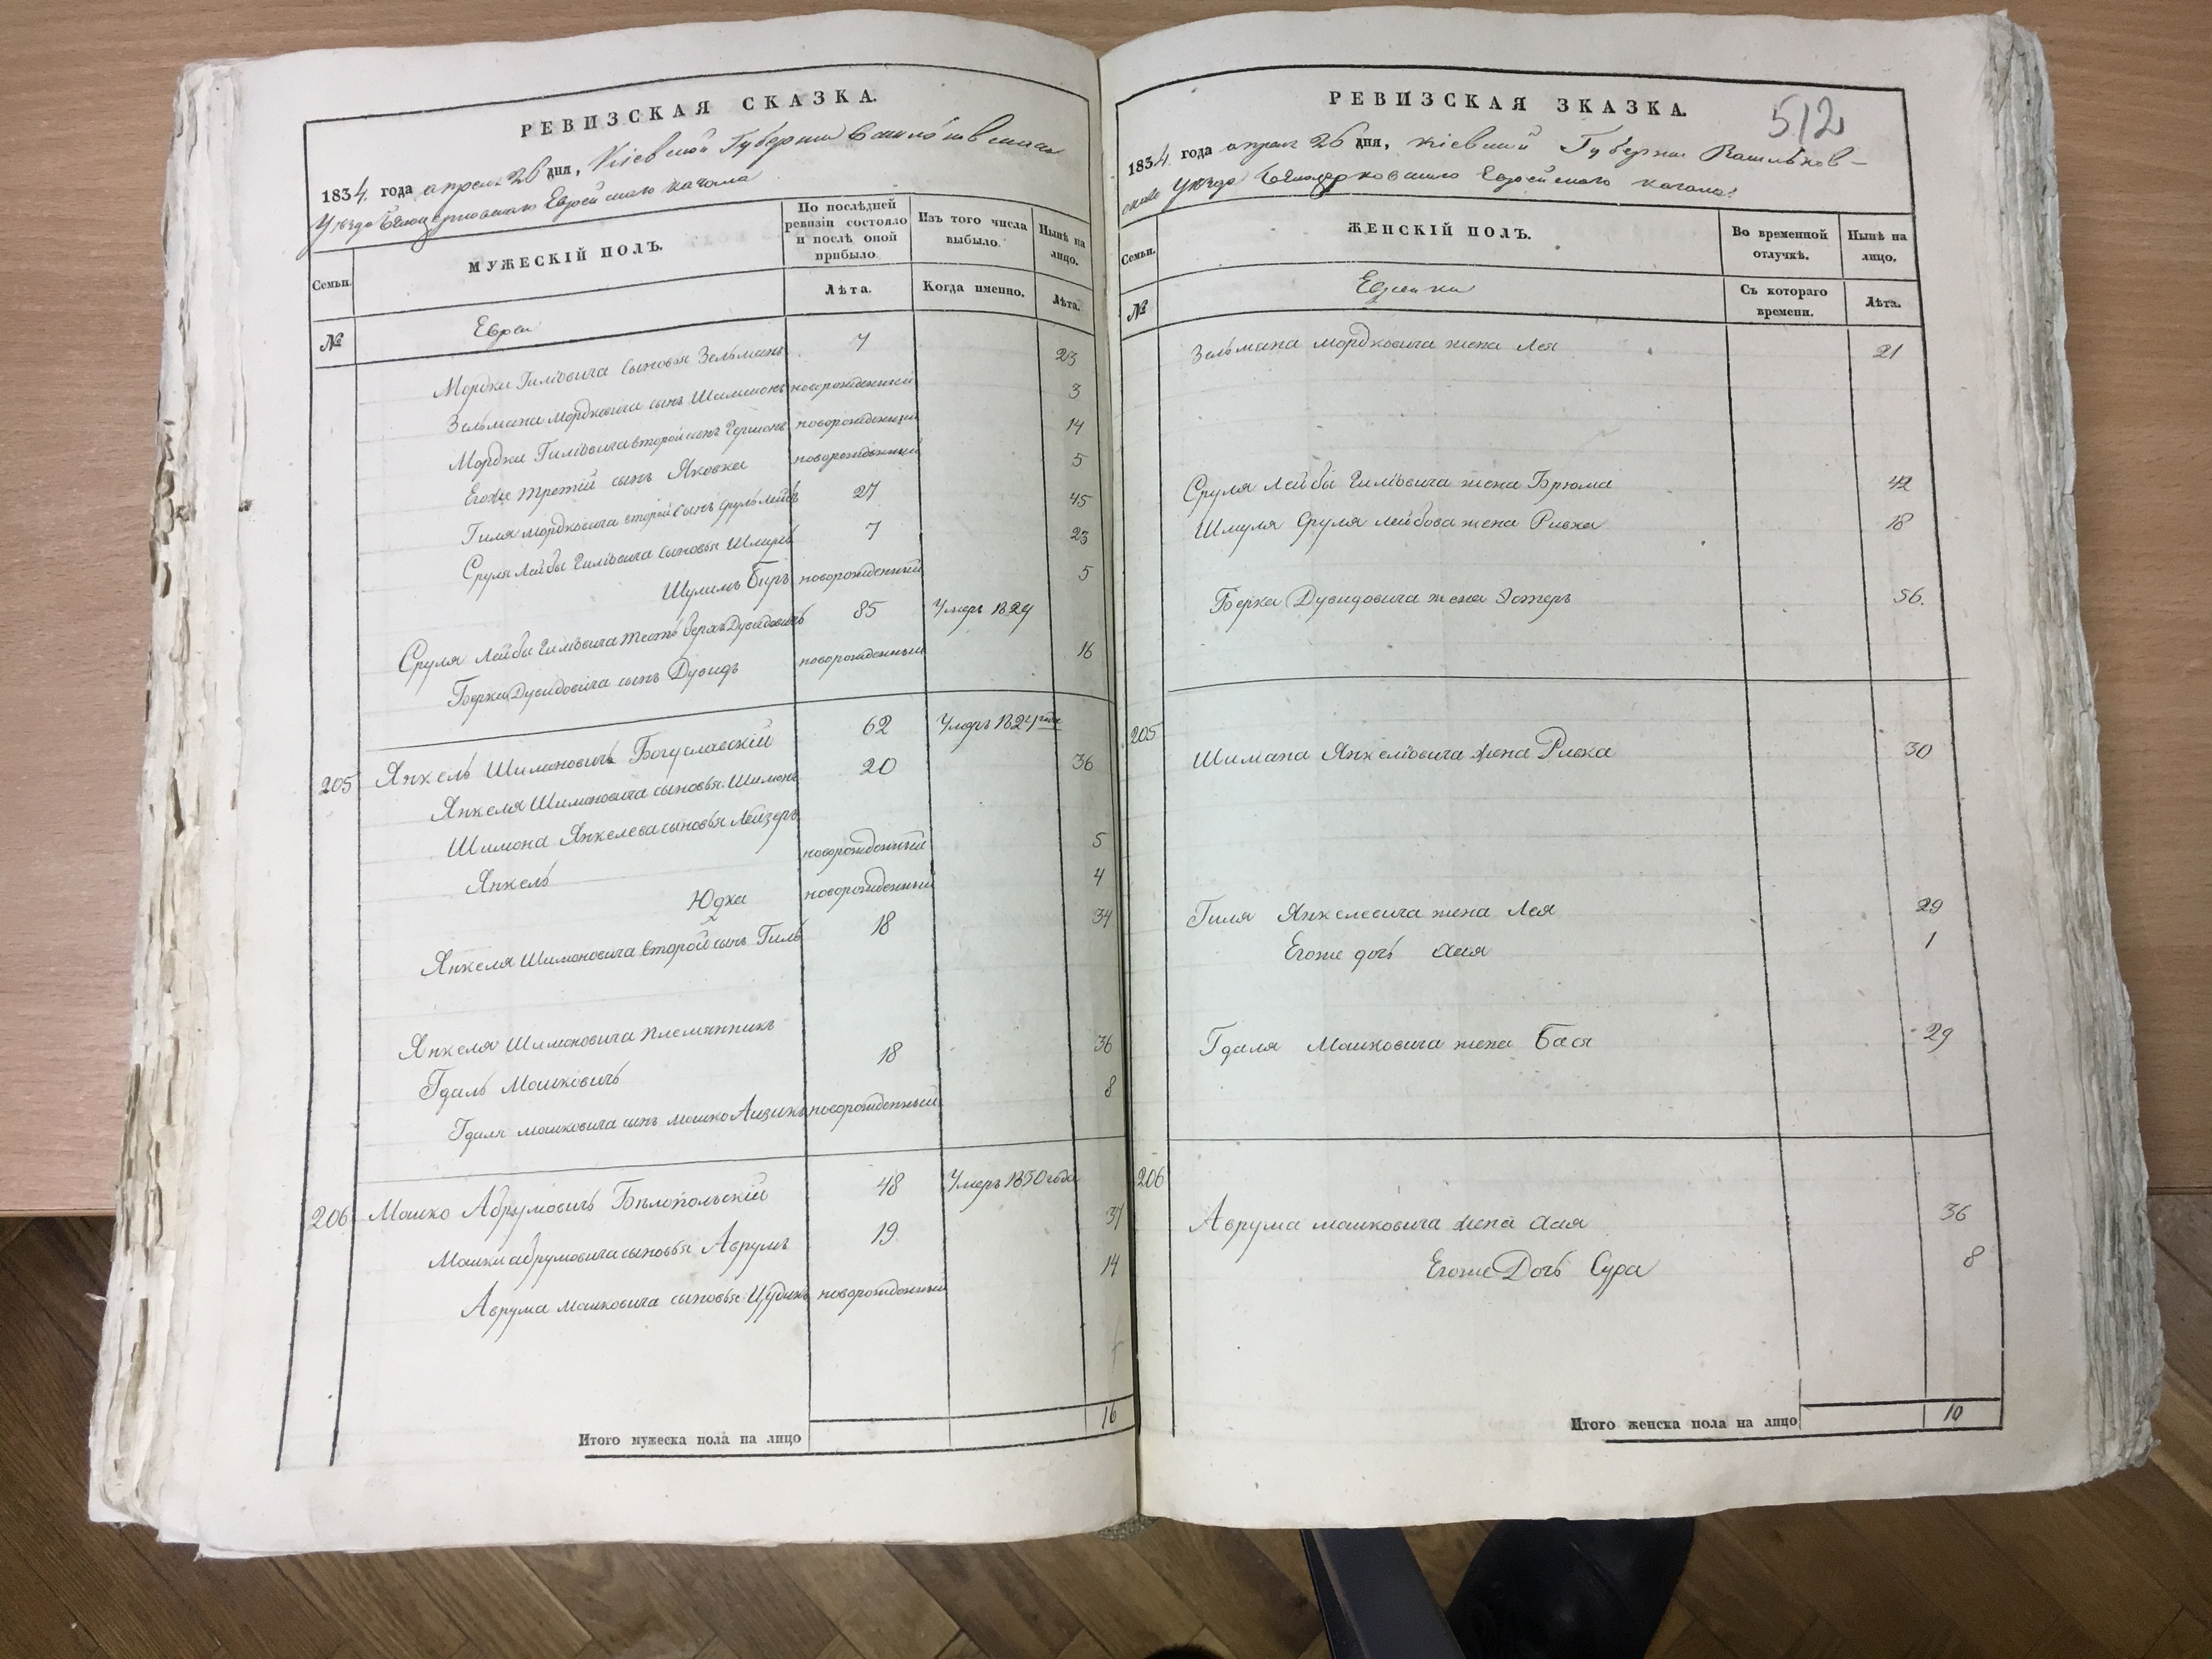 РЕВИЗСКАЯ СКАЗКА.
1834 года апреля 26 дня, Кіевской Губерніи Васильковскаго
Уѣзда Бѣлоцерковскаго Еврейскаго кагала
Семьи.
МУЖЕСКІЙ ПОЛЪ.
По послѣдней ревизіи состояло и послѣ оной прибыло.
Изъ того числа выбыло.
Нынѣ на лицо.
№
Евреи
Лѣта.
Когда именно.
Лѣта.
Мордки Гилiовича сыновья Зельманъ 7 23
Зельмана Мордковича сынъ Шлимонъ новорожденный 3
Мордки Гилiовича второй сынъ Гершонъ новорожденный 14
Егоже третій сынъ Яковка новорожденный 5
Гиля Мордковича второй сынъ Сруль Лейба 27 45
Сруля Лейбы Гилiовича сыновья Шмуль 7 23
Шулимъ Беръ новорожденный 5
Сруля Лейбы Гилiовича тесть Берка Дувидовичъ 85 Умеръ 1829
Берки Дувидовича сынъ Дувидъ новорожденный 16
205 Янкель Шимоновичъ Богуславскій 62 Умеръ 1824 года
Янкеля Шимоновича сыновья: Шимонъ 20 36
Шимона Янкелева сыновья Лейзеръ
Янкель новорожденный 5
Юдка новорожденный 4
Янкеля Шимоновича второй сынъ Гиль 18 34
Янкеля Шимоновича племянникъ
Гдаль Мошковичъ 18 36
Гдаля Мошковича сынъ Мошко Аизикъ новорожденный 8
206 Мошко Абрумовичъ Бѣлопольскій 48 Умеръ 1830 года
Мошки Абрумовича сыновья Аврумъ 19 37
Аврума Мошковича сыновья: новорожденный 14
Итого мужеска пола на лицо 16
РЕВИЗСКАЯ ЗКАЗКА.
512
1834 года апреля 26 дня, Кіевской Губерніи Васильков-
скаго Уѣзда Бѣлоцерковскаго Еврейскаго кагала:
Семьи.
ЖЕНСКІЙ ПОЛЪ.
Во временной отлучкѣ.
Нынѣ на лицо.
№
Еврейки
Съ котораго времени.
Лѣта.
Зельмана Мордковича жена Лея 21
Сруля Лейбы Гилiовича жена Брюма 42
Шмуля Сруля Лейбова жена Ривка 18
Берка Дувидовича жена Эстеръ 56.
205
Шимана Янкелiовича жена Ривка 30
Гиля Янкелевича жена Лея 29
Егоже дочь Хая 1
Гдаля Мошковича жена Бася 29
206
Аврума Мошковича жена Хая 36
Егоже Дочь Сура 8
Итого женска пола на лицо 10